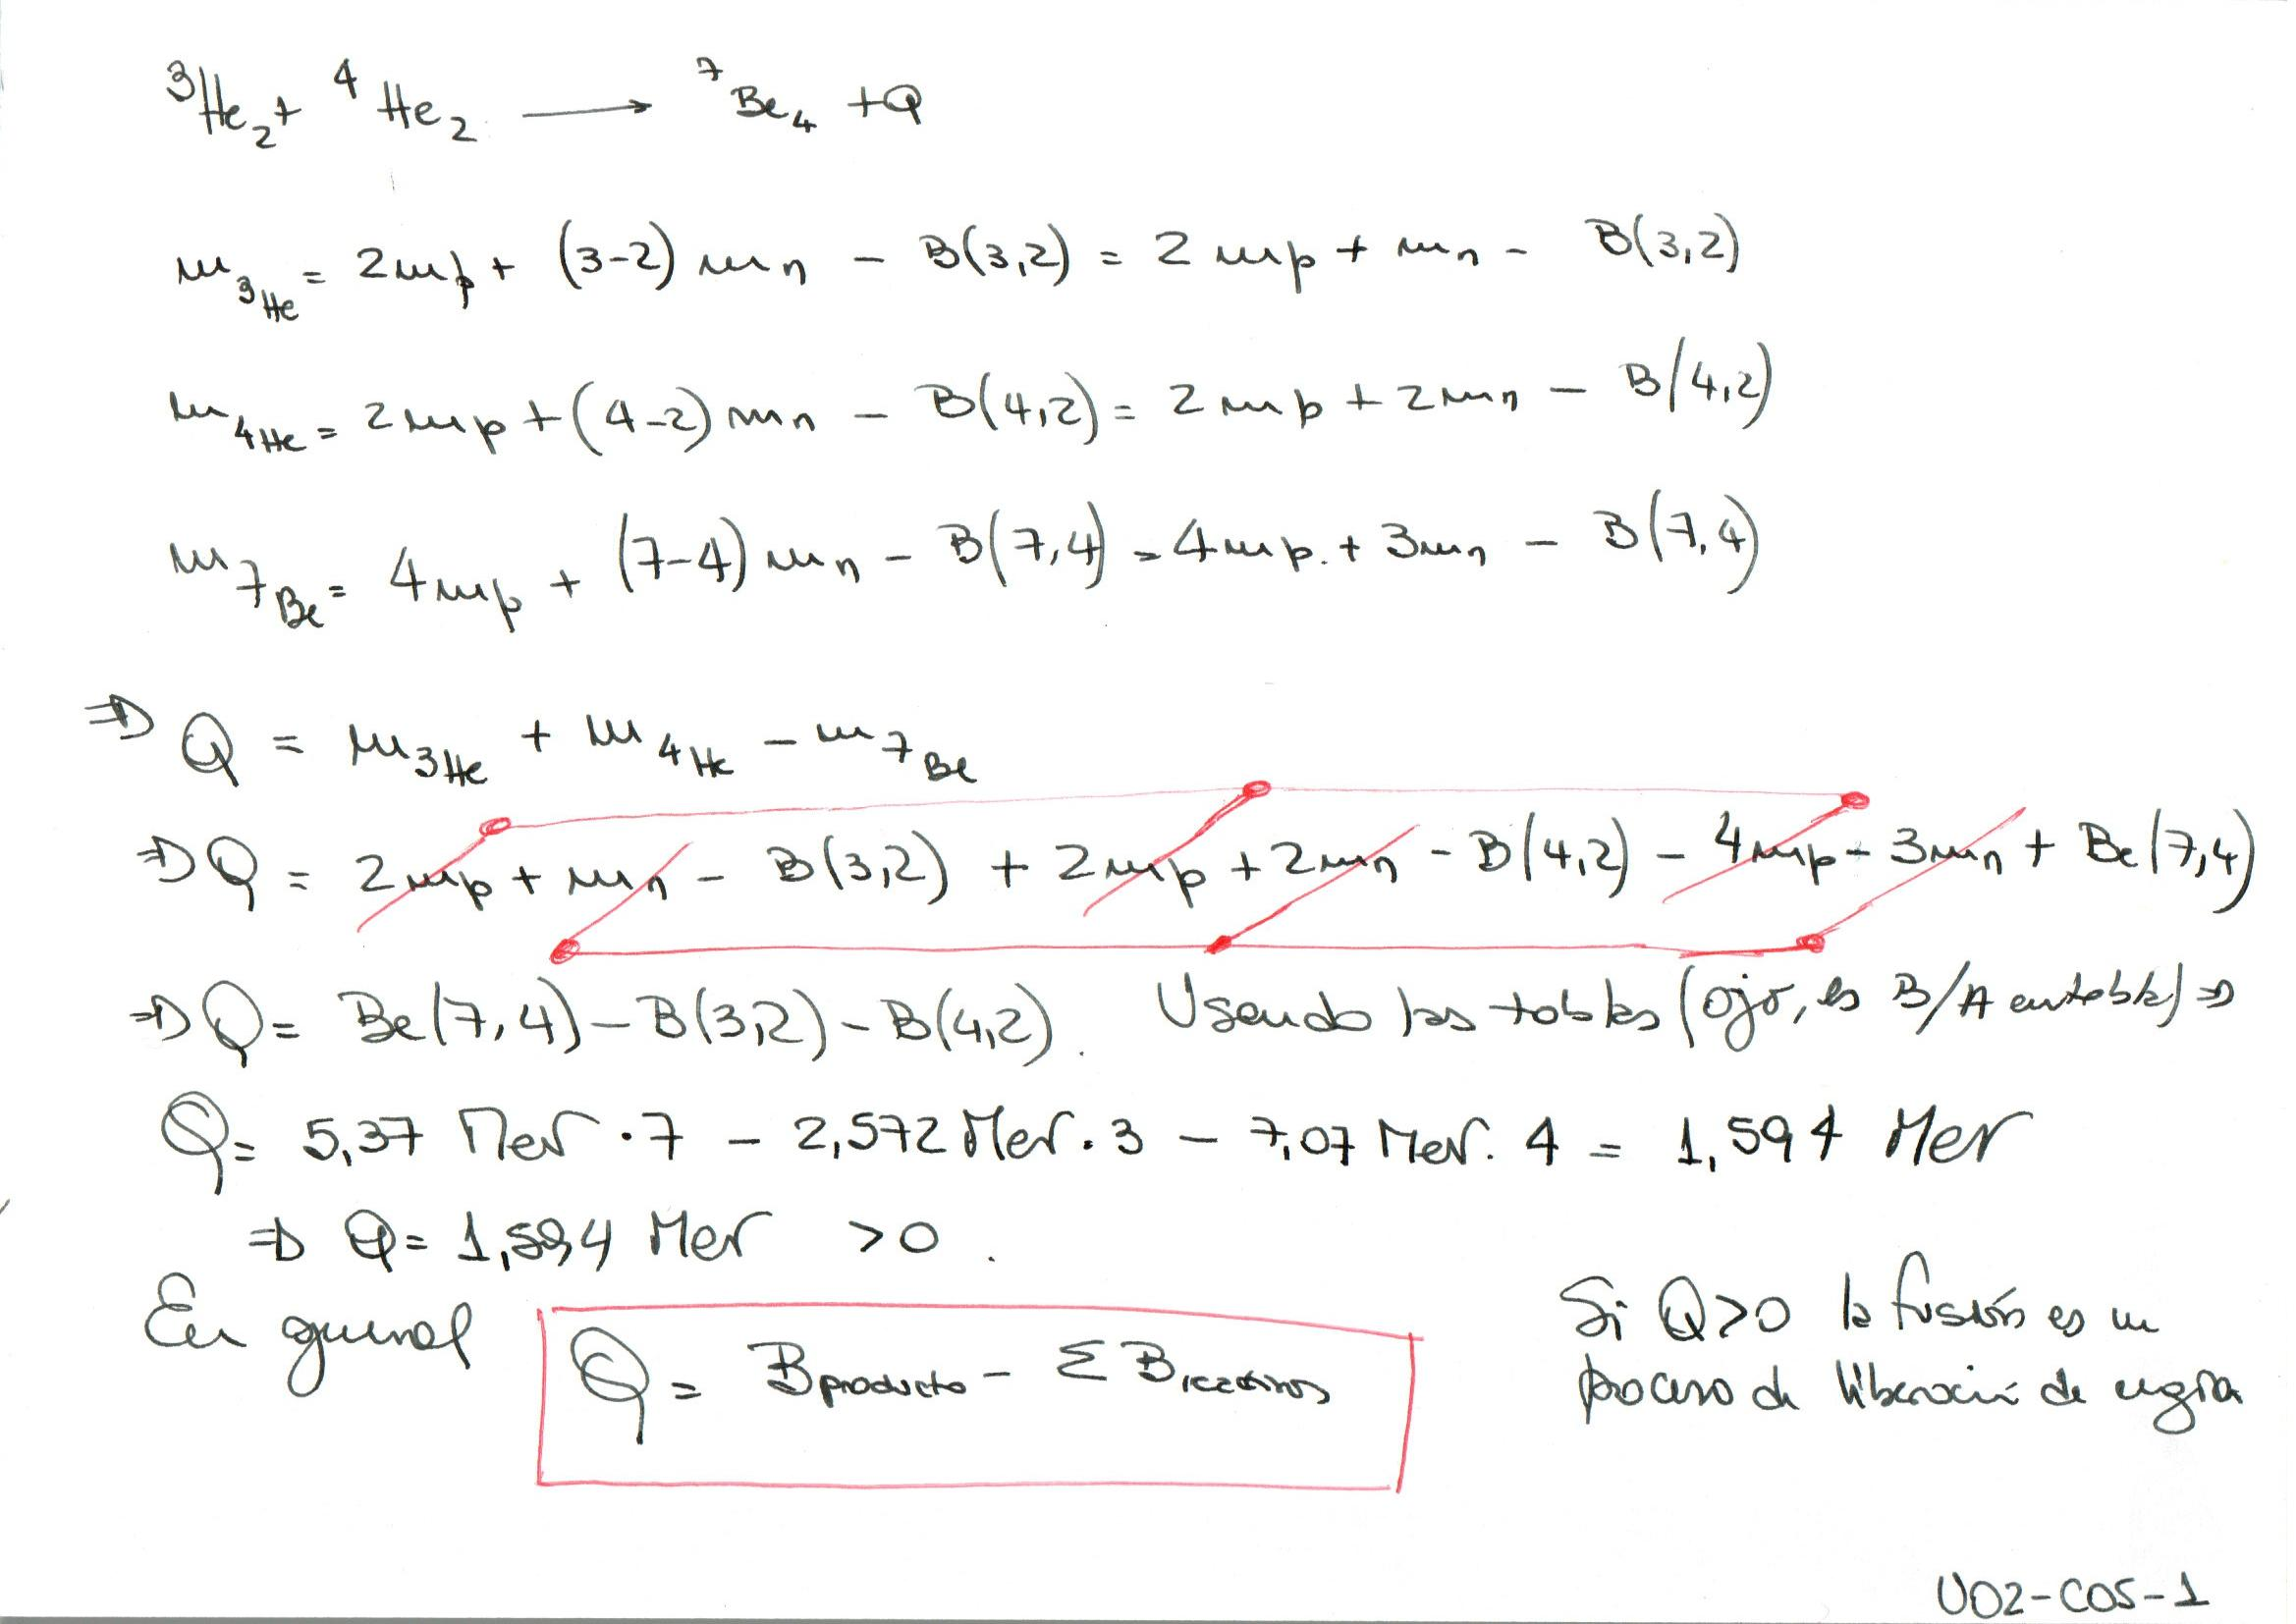 ³He₂ + ⁴He₂ ⟶ ⁷Be₄ + Q
m₃He = 2mp + (3-2) mn - B(3,2) = 2 mp + mn - B(3,2)
m₄He = 2mp + (4-2) mn - B(4,2) = 2mp + 2mn - B(4,2)
m₇Be = 4mp + (7-4) mn - B(7,4) = 4mp + 3mn - B(7,4)
⇒ Q = m₃He + m₄He - m₇Be
⇒ Q = 2mp + mn - B(3,2) + 2mp + 2mn - B(4,2) - 4mp - 3mn + Be(7,4)
⇒ Q = Be(7,4) - B(3,2) - B(4,2). Usando las tablas (ojo, es B/A en tabla) ⇒
Q = 5,37 MeV · 7 - 2,572 MeV · 3 - 7,07 MeV · 4 = 1,594 MeV
⇒ Q = 1,594 MeV > 0.
En general Q = Bproducto - Σ Breactivos
Si Q > 0 la fusión es un
proceso de liberación de energía
U02-C05-1